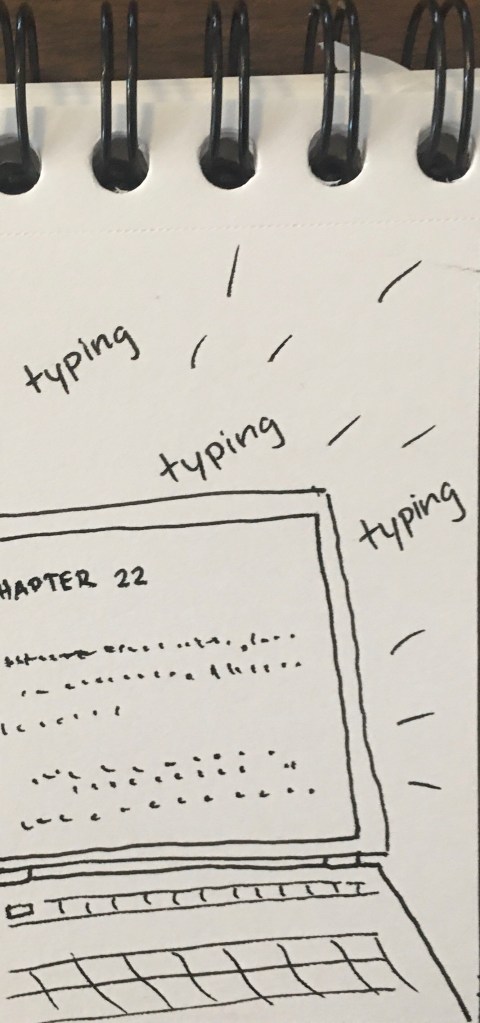 typing
typing
typing
HAPTER 22